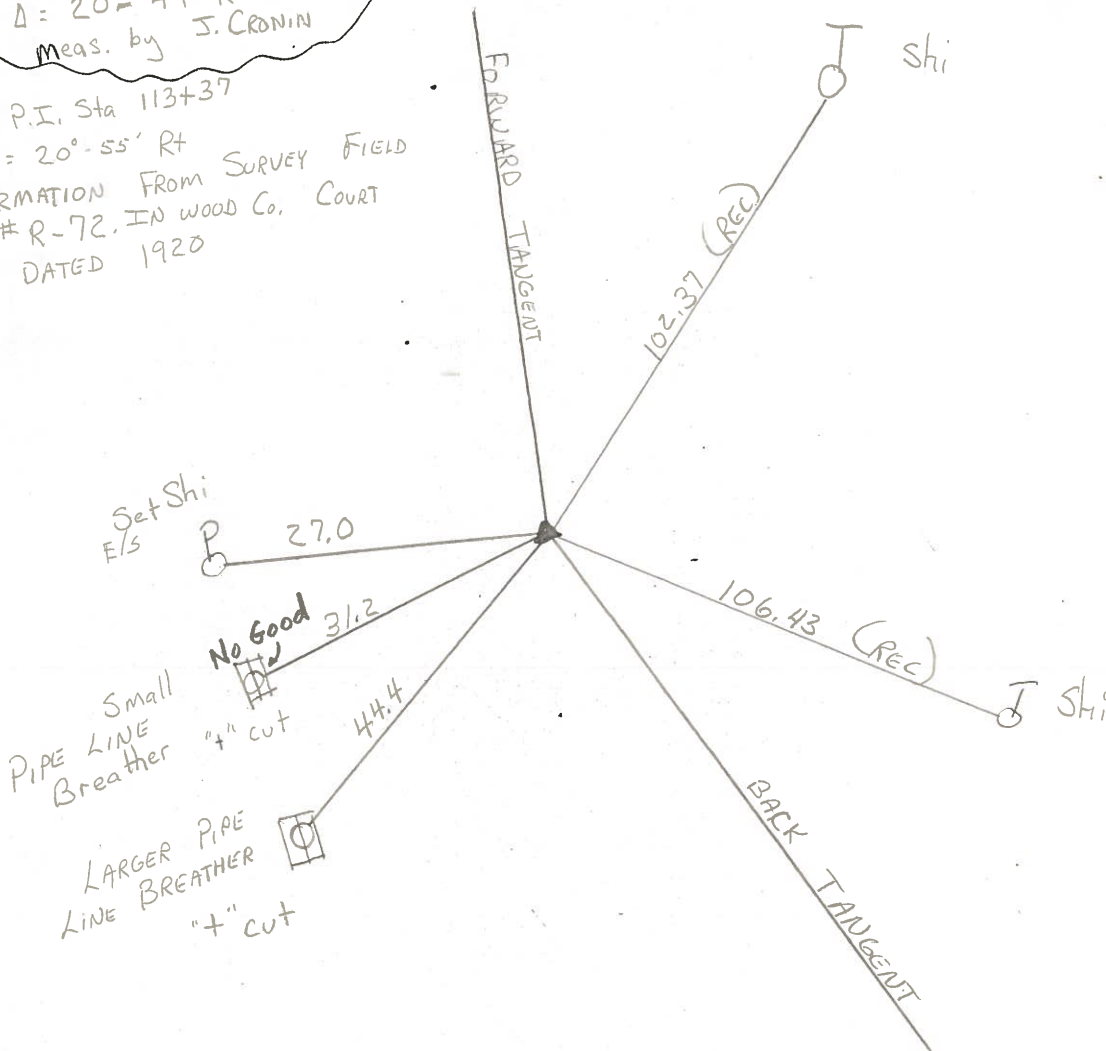 Δ = 20
Meas. by J. CRONIN
P.I. Sta 113+37
= 20°-55' Rt
RMATION FROM SURVEY FIELD
# R-72. IN WOOD Co. COURT
DATED 1920
FORWARD TANGENT
T Shi
102.37 (REC)
Set Shi
E/S
P
27.0
No Good
31.2
106.43 (REC)
T Shi
Small
PIPE LINE
Breather "+" cut
44.4
LARGER PIPE
LINE BREATHER
"+" cut
BACK TANGENT